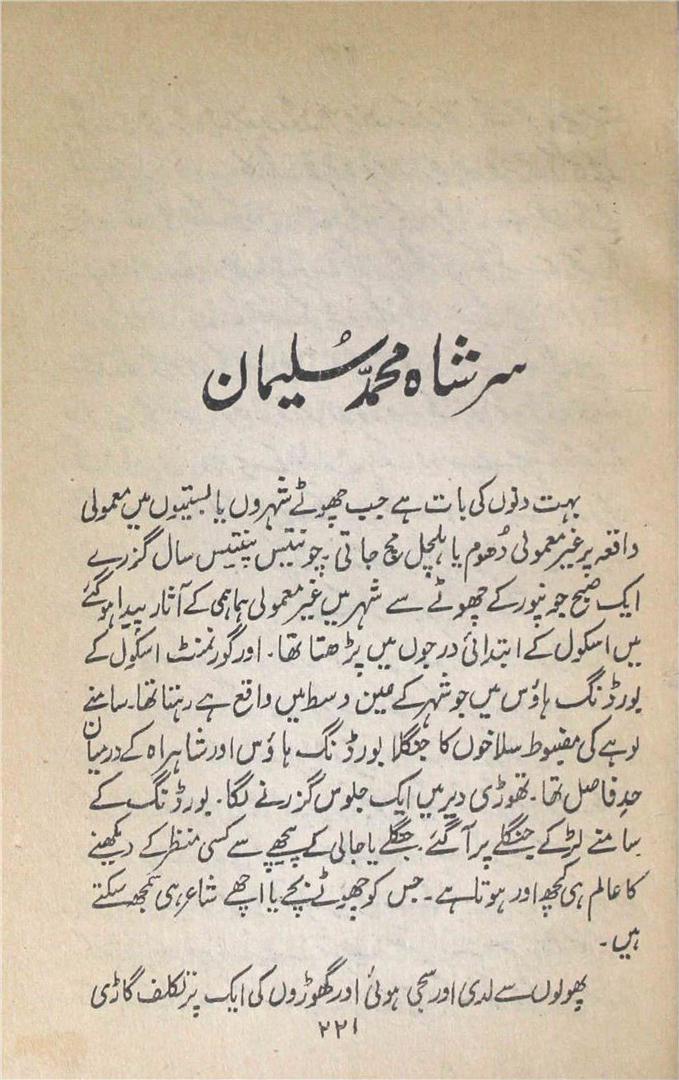 سر شاہ محمدّ سُلیمان
بہت دنوں کی بات ہے جب چھوٹے شہروں یا بستیوں میں معمولی
واقعہ پر غیر معمولی دُھوم یا ہلچل مچ جاتی ۔ چونتیس پنتیس سال گزرے
ایک صبح جونپور کے چھوٹے سے شہر میں غیر معمولی ہماہمی کے آثار پیدا ہو گئے
میں اسکول کے ابتدائی درجوں میں پڑھتا تھا ۔ اور گورنمنٹ اسکول کے
بورڈنگ ہاؤس میں جو شہر کے عین وسط میں واقع ہے رہتا تھا ۔ سامنے
لوہے کی مضبوط سلاخوں کا جنگلا بورڈنگ ہاؤس اور شاہراہ کے درمیان
حدِ فاصل تھا ۔ تھوڑی دیر میں ایک جلوس گزرنے لگا ۔ بورڈنگ کے
سامنے لڑکے جنگلے پر آ گئے ۔ جنگلے یا جالی کے پیچھے سے کسی منظر کے دیکھنے
کا عالم ہی کچھ اور ہوتا ہے ۔ جس کو چھوٹے بچے یا اچھے شاعر ہی سمجھ سکتے
ہیں ۔
پھولوں سے لدی اور سجی ہوئی اور گھوڑوں کی ایک پُر تکلف گاڑی
۲۲۱